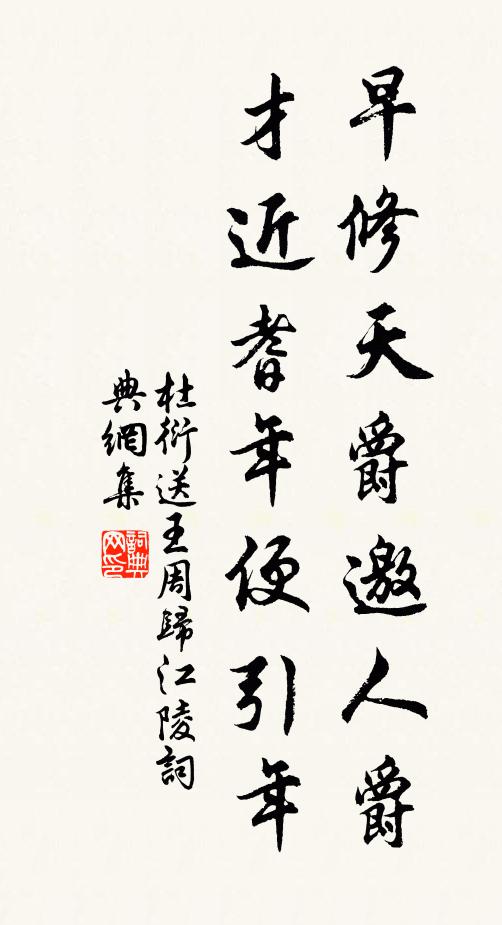 早修天爵邀人爵
才近耆年便引年
杜衍送王周歸江陵詞
典網集
詞典网印